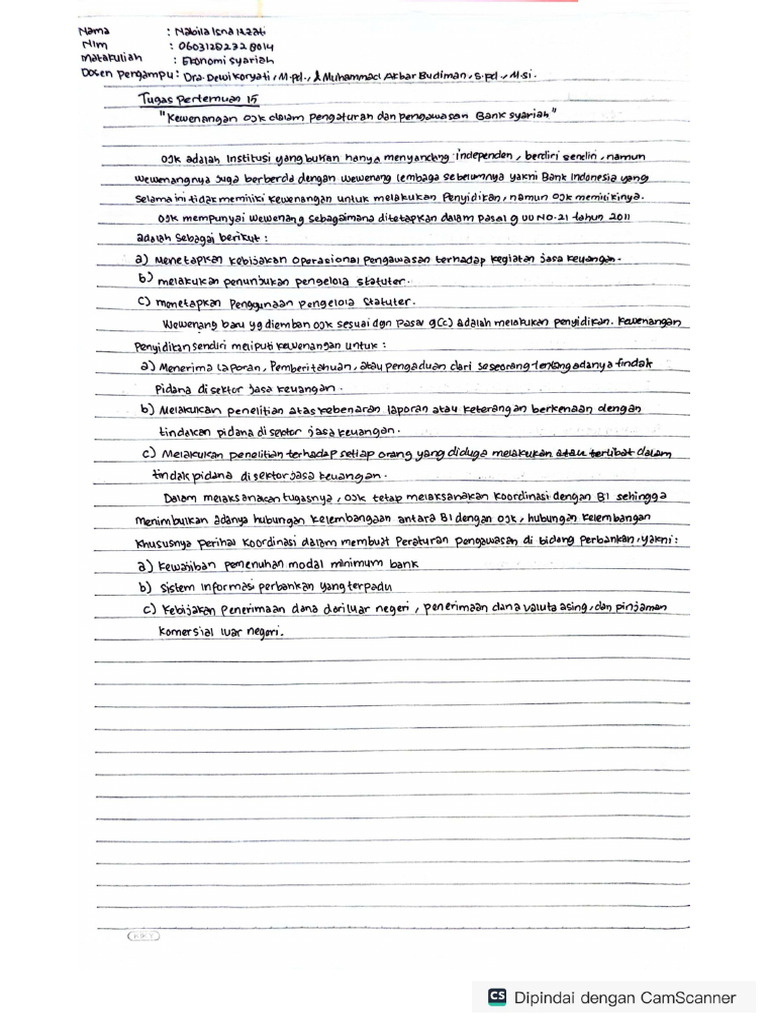 Nama : Nabila Isna Izzati
NIm : 06031282328014
Matakuliah : Ekonomi syariah
Dosen Pengampu : Dra. Dewi Koryati, M.pd., & Muhammad Akbar Budiman, S.pd., M.si.
Tugas Pertemuan 15
"Kewenangan OJK dalam Pengaturan dan pengawasan Bank syariah"
OJK adalah Institusi yang bukan hanya menyandang independen, berdiri sendiri, namun
wewenangnya juga berberda dengan wewenang lembaga sebelumnya yakni Bank Indonesia yang
selama ini tidak memiliki kewenangan untuk melakukan Penyidikan, namun OJK memilikinya.
OJK mempunyai wewenang sebagaimana ditetapkan dalam pasal 9 UU NO. 21 tahun 2011
adalah sebagai berikut :
a) Menetapkan kebijakan operasional Pengawasan terhadap kegiatan jasa keuangan.
b) melakukan penunjukan pengelola statuter.
c) menetapkan Penggunaan pengelola statuter.
Wewenang baru yg diemban OJK sesuai dgn Pasal 9(c) adalah melakukan penyidikan. Kewenangan
Penyidikan sendiri meliputi kewenangan untuk :
a) Menerima Laporan, Pemberitahuan, atau pengaduan dari seseorang tentang adanya tindak
Pidana di sektor jasa keuangan.
b) Melakukan penelitian atas kebenaran laporan atau keterangan berkenaan dengan
tindakan pidana di sektor jasa keuangan.
c) Melakukan penelitian terhadap setiap orang yang diduga melakukan atau terlibat dalam
tindak pidana di sektor jasa keuangan.
Dalam melaksanakan tugasnya, OJK tetap melaksanakan koordinasi dengan BI sehingga
menimbulkan adanya hubungan kelembangaan antara BI dengan OJK, hubungan kelembangan
khususnya perihal koordinasi dalam membuat Peraturan pengawasan di bidang perbankan, yakni :
a) Kewajiban pemenuhan modal minimum bank
b) Sistem Informasi perbankan yang terpadu
c) Kebijakan penerimaan dana dari luar negeri, penerimaan dana valuta asing, dan pinjaman
komersial luar negeri.
KKY
CS Dipindai dengan CamScanner